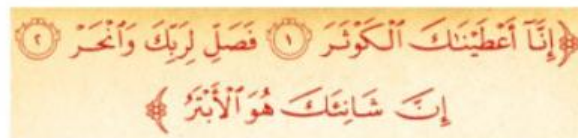 ﴿إِنَّآ أَعْطَيْنَـٰكَ ٱلْكَوْثَرَ ۝١ فَصَلِّ لِرَبِّكَ وَٱنْحَرْ ۝٢
إِنَّ شَانِئَكَ هُوَ ٱلْأَبْتَرُ﴾